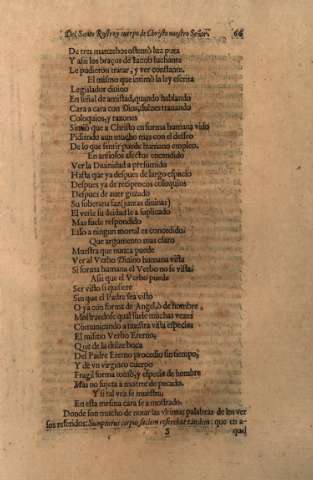 Del Santo Rostro y cuerpo de Christo nuestro Señor. 66
De tres mancebos ostentò luz pura
Y assi los braços de Iacob luchante
Le pudieron tratar, y ver constante.
El mismo que intimò la ley escrita
Legislador diuino
En señal de amistad, quando hablando
Cara a cara con Dios, dulzes trauando
Coloquios, y razones
Siruiò que a Christo en forma humana vido
Pidiendo aun mucho mas con el desseo
De lo que sentir puede humano empleo.
En ansiosos afectos encendido
Ver la Diuinidad a pretendido
Hasta que ya despues de largo espacio
Despues ya de reciprocos coloquios
Despues de auer gozado
Su soberana faz (juntas diuinas)
El verle su deidad le a suplicado
Mas fuele respondido
Esso a ningun mortal es concedido.
Que argumento mas claro
Muestra que nunca puede
Ver al Verbo Diuino humana vista
Si forma humana el Verbo no se vista.
Assi que el Verbo puede
Ser visto si quisiere
Sin que el Padre sea visto
O ya con forma de Angel, ò de hombre,
Mostrandose qual suele muchas vezes
Comunicando a nuestra vista especies
El mismo Verbo Eterno,
Que de la dulze boca
Del Padre Eterno procedio sin tiempo,
Y de vn virgineo cuerpo
Fragil forma tomò, y especie de hombre
Mas no sujeta a muerte de pecado.
Y si tal vez se muestra,
En esta mesma cara se a mostrado.
Donde son mucho de notar las vltimas palabras de los ver
sos referidos: Sumpturus corpus faciem referebat eandem: que en a-
S
quel